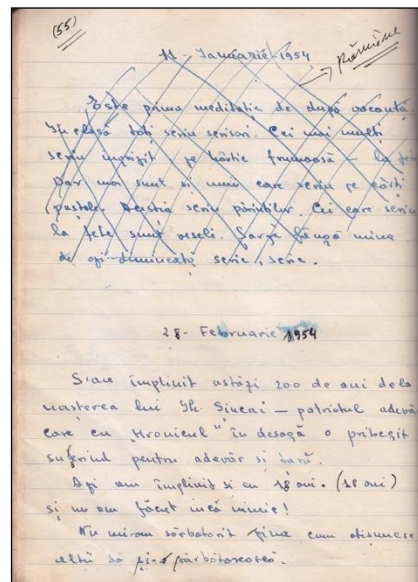 (55)
11 - Ianuarie - 1954
Rămâne
Este prima meditație de după vacanță.
În clasă toți scriu scrisori. Cei mai mulți
scriu îngrijit pe hârtie frumoasă – la fete
Dar mai sunt și unii care scriu pe cărți
poștale. Aceștia scriu părinților. Cei care scriu
la fete sunt veseli. lângă mine
de azi-dimineață scrie, scrie.
28 - Februarie 1954
S'au împlinit astăzi 200 de ani de la
nașterea lui Gh. Șincai – patriotul adevă
care cu „Hronicul" în desagă a pribegit
suferind pentru adevăr și țară.
Azi am împlinit și eu 18 ani. (18 ani)
și nu am făcut încă nimic!
Nu mi-am sărbătorit ziua cum obișnuesc
alții să și-o sărbătorească.